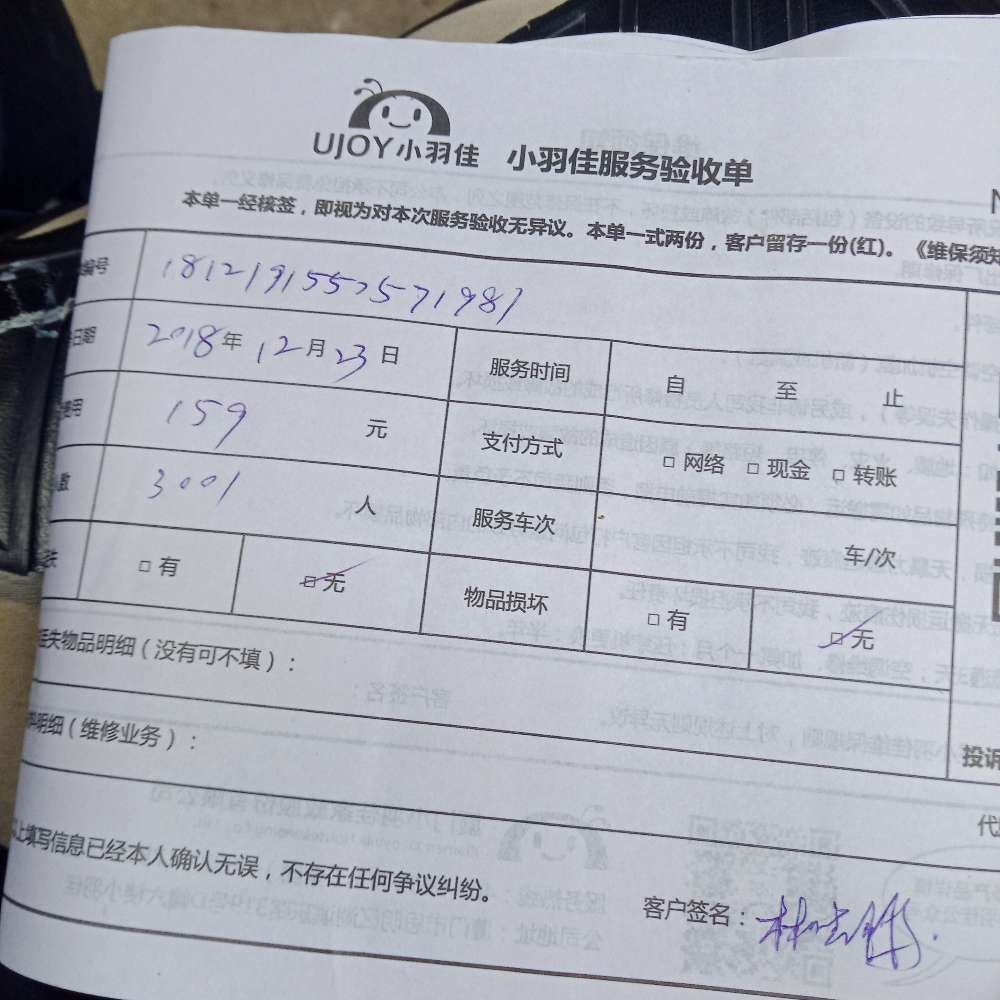 UJOY小羽佳 小羽佳服务验收单
本单一经核签，即视为对本次服务验收无异议。本单一式两份，客户留存一份(红)。《维保须知
编号 1812191552571987
日期 2018年12月23日 服务时间 自 至 止
费用 159 元 支付方式 □ 网络 □ 现金 □ 转账
数 3001 人 服务车次 车/次
失 □ 有 □ 无 物品损坏 □ 有 □ 无
失物品明细（没有可不填）：
明细（维修业务）：
投诉
上填写信息已经本人确认无误，不存在任何争议纠纷。
客户签名：